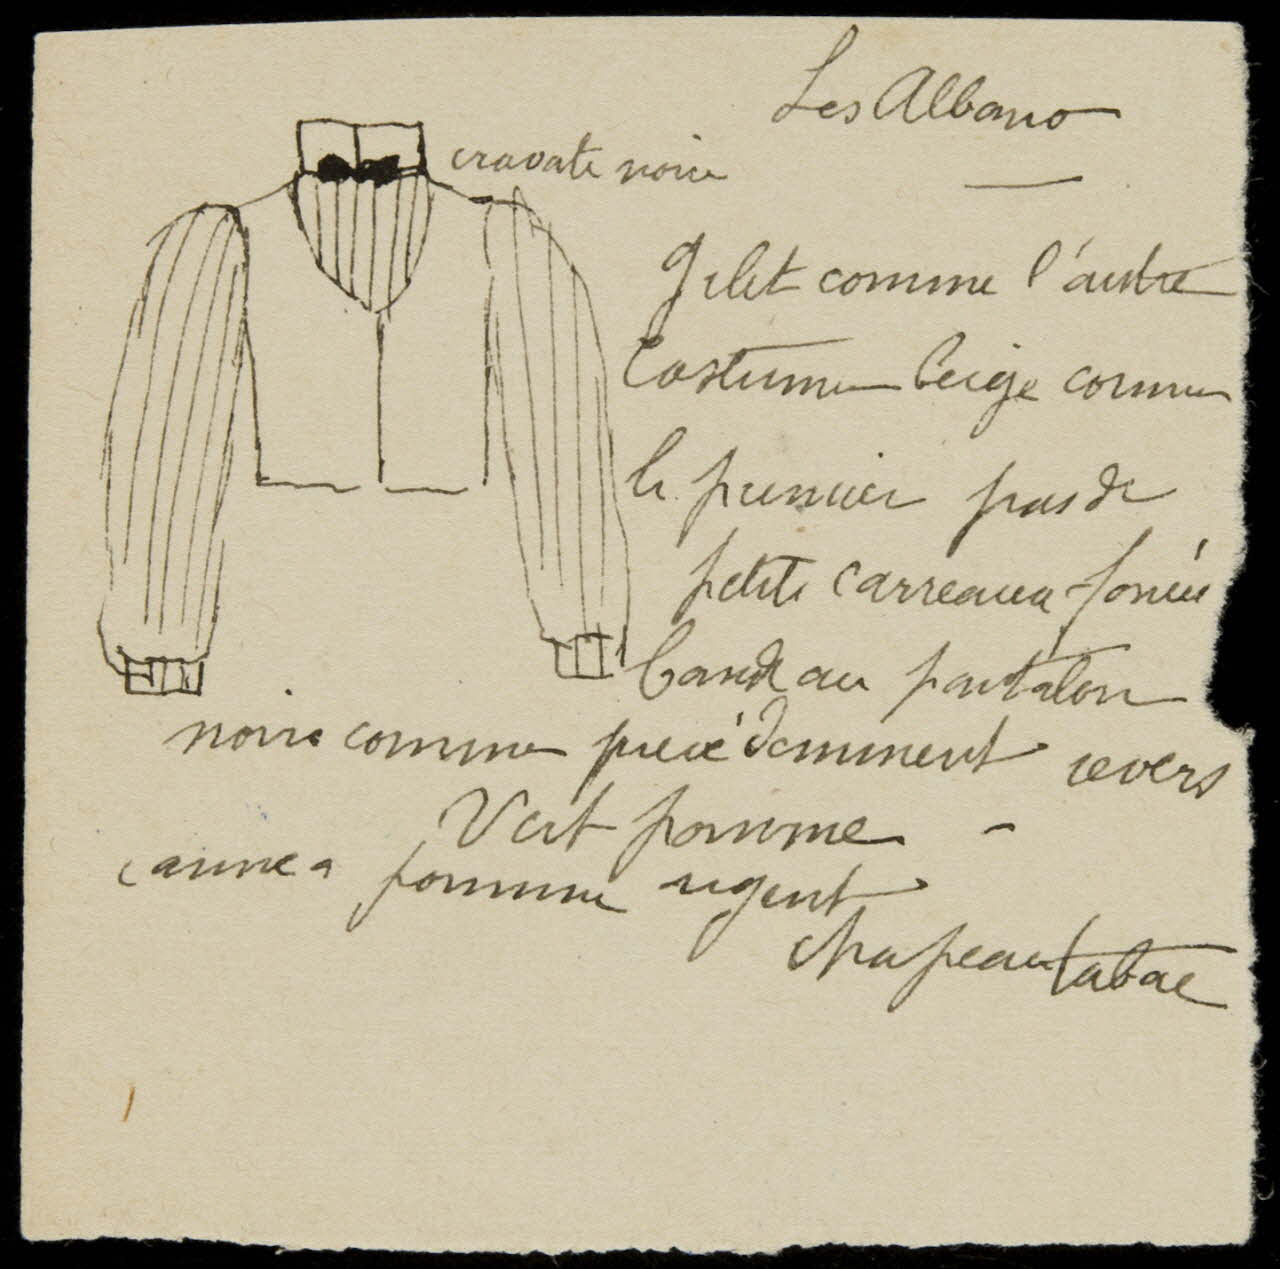 Les Albano
cravate noire
Gilet comme l'autre
Costume beige comme
le premier pas de
petits carreaux foncés
bande au pantalon
noire comme précédemment revers
Vert pomme -
canne a pomme argent
chapeau tabac